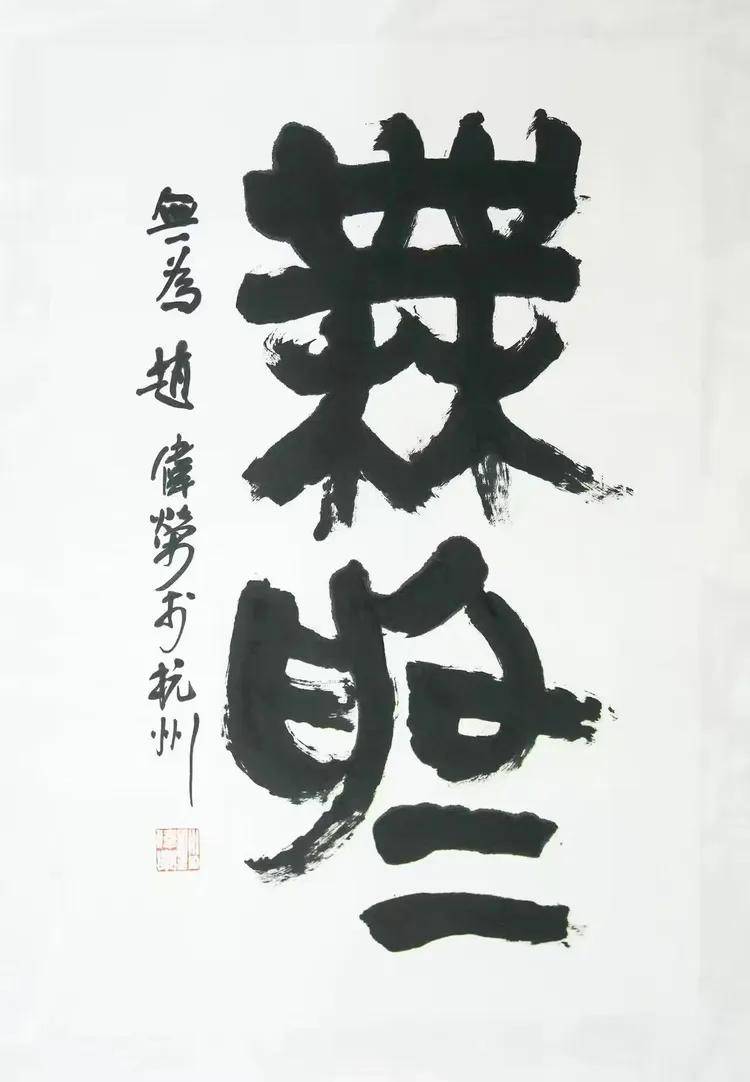 無為
無為 趙偉榮於杭州